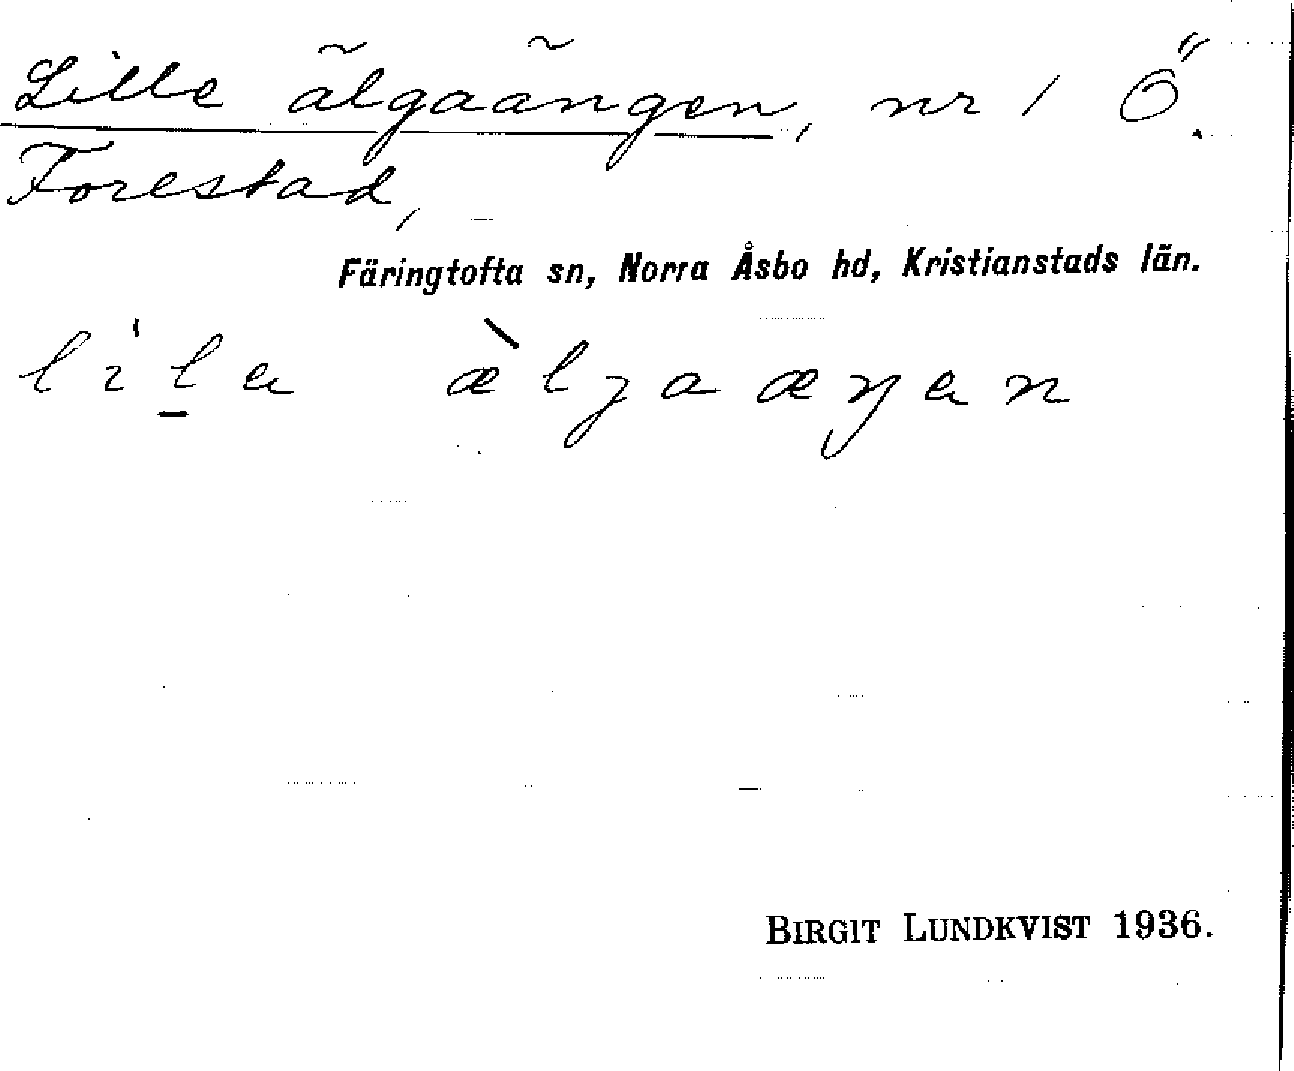 Lille älgaängen, nr 1 Ö.
Forestad,
Färingtofta sn, Norra Åsbo hd, Kristianstads län.
lila æ̀lgaæŋen
BIRGIT LUNDKVIST 1936.